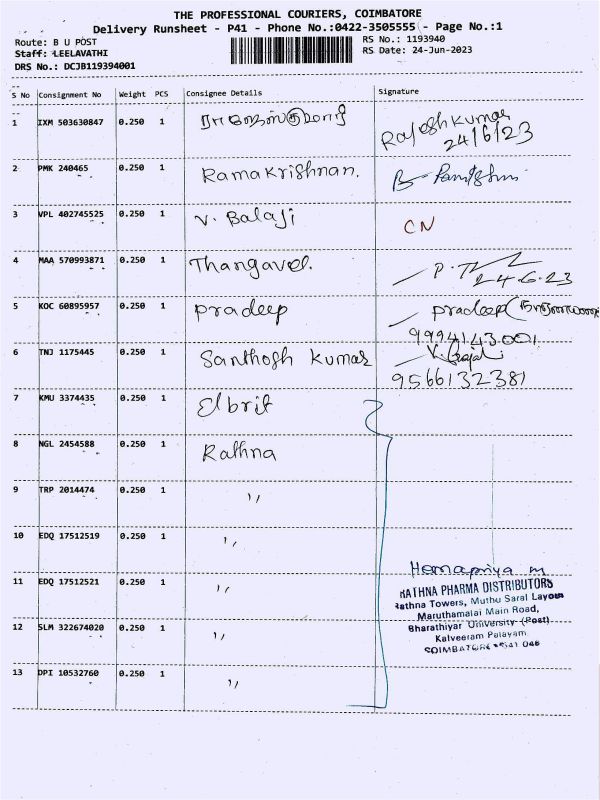 THE PROFESSIONAL COURIERS, COIMBATORE
Delivery Runsheet - P41 - Phone No.:0422-3505555 - Page No.:1
Route: B U POST
RS No.: 1193940
Staff: LEELAVATHI
RS Date: 24-Jun-2023
DRS No.: DCJB119394001
S No Consignment No Weight PCS Consignee Details Signature
1 IXM 503630847 0.250 1 Rajeshkumar
24/6/23
2 PMK 240465 0.250 1 Ramakrishnan.
3 VPL 402745525 0.250 1 V. Balaji CN
4 MAA 570993871 0.250 1 Thangavel.
24-6-23
5 KOC 60895957 0.250 1 pradeep pradeep
9994143001
6 TNJ 1175445 0.250 1 Santhosh Kumar
9566132381
7 KMU 3374435 0.250 1 Elbrit
8 NGL 2454588 0.250 1 Rathna
9 TRP 2014474 0.250 1 "
10 EDQ 17512519 0.250 1 "
Hemapriya m
11 EDQ 17512521 0.250 1 "
RATHNA PHARMA DISTRIBUTORS
Rathna Towers, Muthu Saral Layout
Maruthamalai Main Road,
12 SLM 322674020 0.250 1 "
Bharathiyar University (Post)
Kalveeram Palayam
COIMBATORE - 641 046
13 DPI 10532760 0.250 1 "